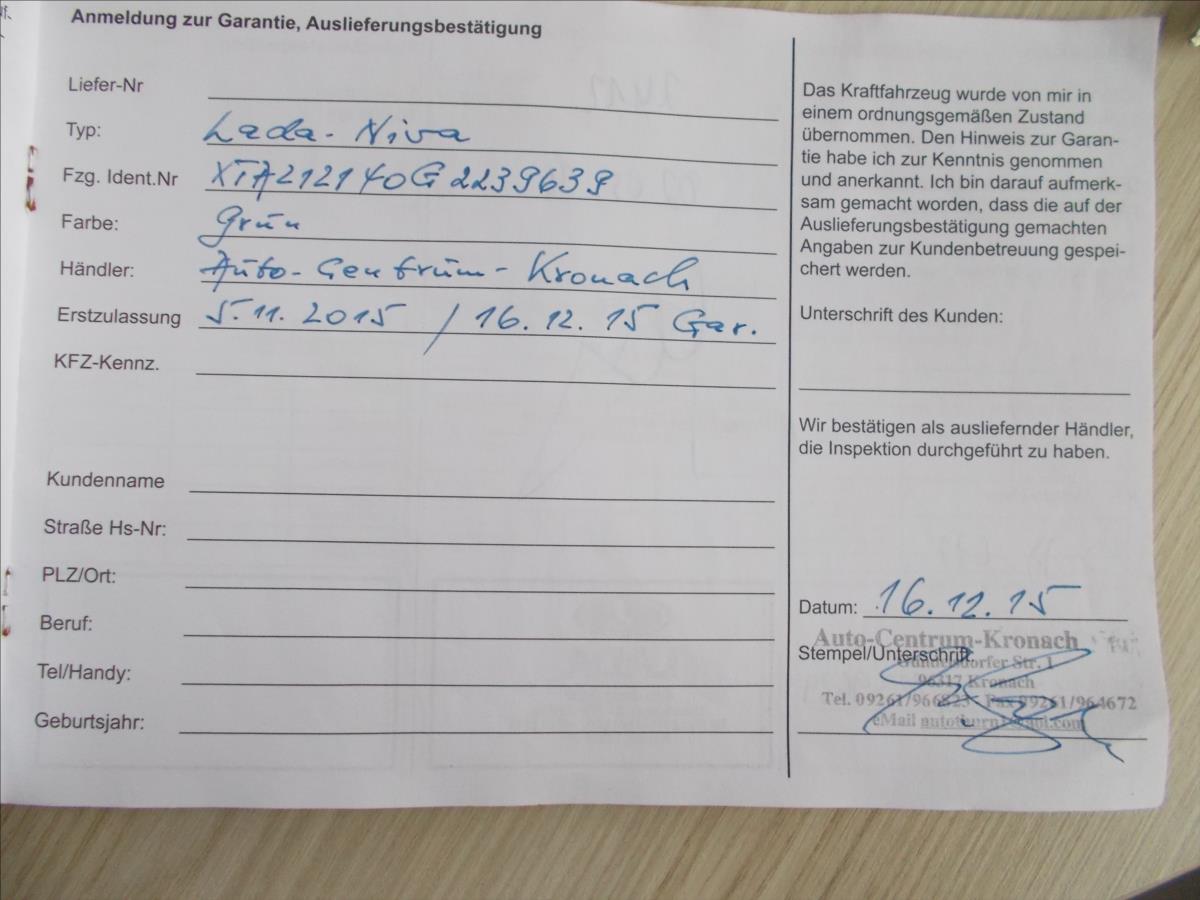 Anmeldung zur Garantie, Auslieferungsbestätigung
Liefer-Nr
Typ: Lada-Niva
Fzg. Ident.Nr XTA212140G2239639
Farbe: Grün
Händler: Auto-Centrum-Kronach
Erstzulassung 5.11.2015 / 16.12.15 Gar.
KFZ-Kennz.
Kundenname
Straße Hs-Nr:
PLZ/Ort:
Beruf:
Tel/Handy:
Geburtsjahr:
Das Kraftfahrzeug wurde von mir in
einem ordnungsgemäßen Zustand
übernommen. Den Hinweis zur Garan-
tie habe ich zur Kenntnis genommen
und anerkannt. Ich bin darauf aufmerk-
sam gemacht worden, dass die auf der
Auslieferungsbestätigung gemachten
Angaben zur Kundenbetreuung gespei-
chert werden.
Unterschrift des Kunden:
Wir bestätigen als ausliefernder Händler,
die Inspektion durchgeführt zu haben.
Datum: 16.12.15
Auto-Centrum-Kronach
Stempel/Unterschrift:
Str. 1
96317 Kronach
Tel. 09261/966823 - Fax 09261/964672
eMail